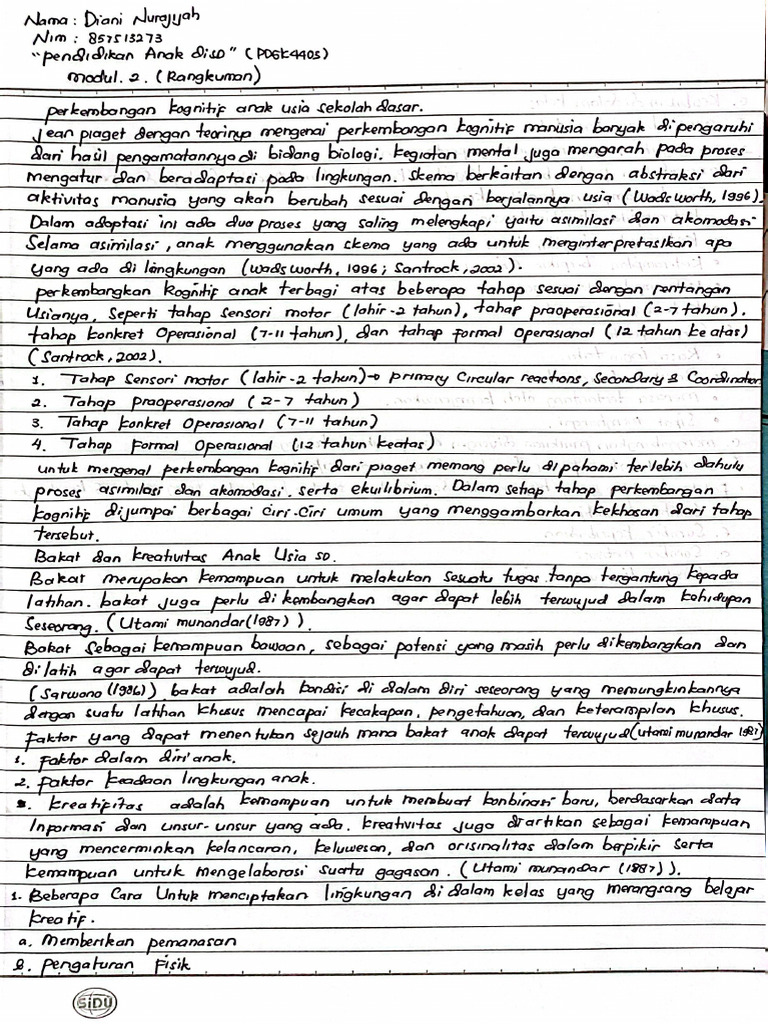 Nama : Diani Nurajijah
Nim : 857513273
"pendidikan Anak diSD" (PDGK4403)
modul. 2. (Rangkuman)
perkembangan kognitif anak usia sekolah dasar.
Jean piaget dengan teorinya mengenai perkembangan kognitif manusia banyak dipengaruhi
dari hasil pengamatannya di bidang biologi. kegiatan mental juga mengarah pada proses
mengatur dan beradaptasi pada lingkungan. Skema berkaitan dengan abstraksi dari
aktivitas manusia yang akan berubah sesuai dengan berjalannya usia (Wadsworth, 1996).
Dalam adaptasi ini ada dua proses yang saling melengkapi yaitu asimilasi dan akomodasi
Selama asimilasi, anak menggunakan skema yang ada untuk menginterpretasikan apa
yang ada di lingkungan (wadsworth, 1996; Santrock, 2002).
perkembangkan kognitif anak terbagi atas beberapa tahap sesuai dengan rentangan
Usianya, Seperti tahap sensori motor (lahir-2 tahun), tahap praoperasional (2-7 tahun).
tahap konkret Operasional (7-11 tahun), dan tahap formal Operasional (12 tahun ke atas)
(Santrock, 2002).
1. Tahap Sensori motor (lahir-2 tahun) → primary Circular reactions, Secondary & Coordination
2. Tahap praoperasional (2-7 tahun)
3. Tahap konkret Operasional (7-11 tahun)
4. Tahap Formal Operasional (12 tahun keatas)
untuk mengenal perkembangan kognitif dari piaget memang perlu dipahami terlebih dahulu
proses asimilasi dan akomodasi. serta ekuilibrium. Dalam setiap tahap perkembangan
kognitif dijumpai berbagai ciri-ciri umum yang menggambarkan kekhasan dari tahap
tersebut.
Bakat dan kreativitas Anak Usia SD.
Bakat merupakan kemampuan untuk melakukan sesuatu tugas tanpa tergantung kepada
latihan. bakat juga perlu dikembangkan agar dapat lebih terwujud dalam kehidupan
Seseorang. (Utami munandar(1987)).
Bakat sebagai kemampuan bawaan, sebagai potensi yang masih perlu dikembangkan dan
dilatih agar dapat terwujud.
(Sarwono (1986)) bakat adalah kondisi di dalam diri seseorang yang memungkinkannya
dengan suatu latihan khusus mencapai kecakapan, pengetahuan, dan keterampilan khusus.
Faktor yang dapat menentukan sejauh mana bakat anak dapat terwujud (utami munandar 1987)
1. Faktor dalam diri anak.
2. Faktor keadaan lingkungan anak.
kreatifitas adalah kemampuan untuk membuat konbinasi baru, berdasarkan data
Informasi dan unsur-unsur yang ada. kreativitas juga diartikan sebagai kemampuan
yang mencerminkan kelancaran, keluwesan, dan orisinalitas dalam berpikir serta
kemampuan untuk mengelaborasi suatu gagasan. (Utami munandar (1987)).
1. Beberapa Cara Untuk menciptakan lingkungan di dalam kelas yang merangsang belajar
kreatif.
a. Memberikan pemanasan
b. Pengaturan Fisik
SiDU